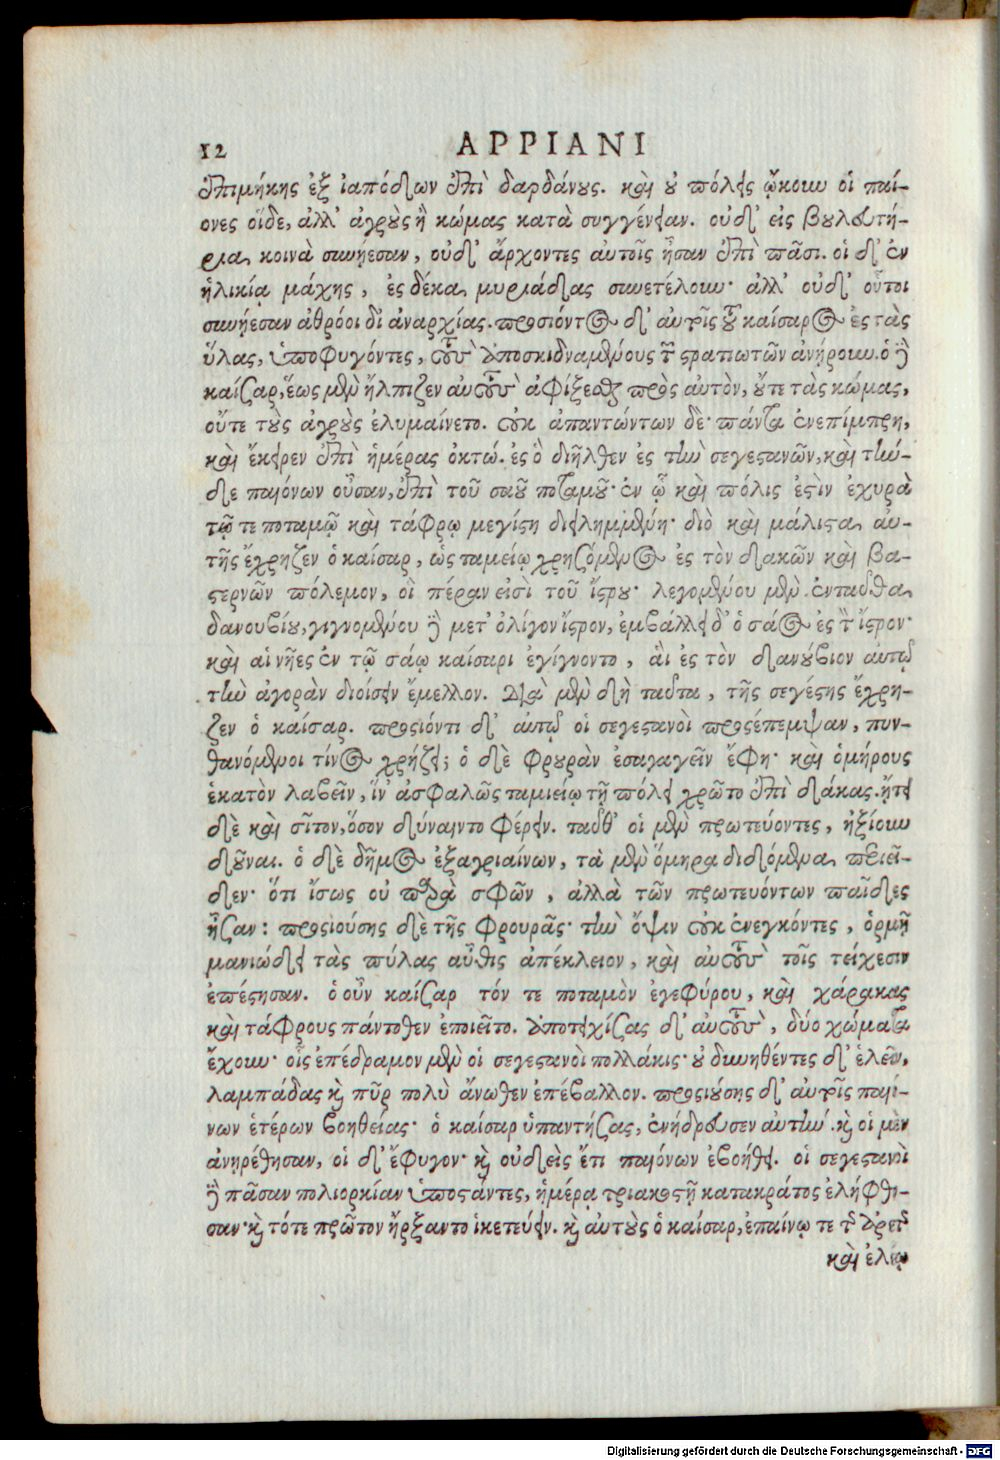 12 APPIANI
ἐπιμήκης ἐξ ἰαπόδων ἐπὶ δαρδάνους. καὶ οὐ πόλεις ᾤκουν οἱ παί-
ονες οἵδε, ἀλλ' ἀγροὺς ἢ κώμας κατὰ συγγένειαν. οὐδ' εἰς βουλευτή-
ρια κοινὰ συνῄεσαν, οὐδ' ἄρχοντες αὐτοῖς ἦσαν ἐπὶ πᾶσι. οἱ δ' ἐν
ἡλικίᾳ μάχης, ἐς δέκα μυριάδας συνετέλουν· ἀλλ' οὐδ' οὗτοι
συνῄεσαν ἀθρόοι δι' ἀναρχίας. προσιόντος δ' αὐτοῖς τοῦ καίσαρος ἐς τὰς
ὕλας, ὑποφυγόντες, τοὺς ἀποσκιδναμένους τῶν στρατιωτῶν ἀνῄρουν. ὁ δὲ
καῖσαρ, ἕως μὲν ἤλπιζεν αὐτοὺς ἀφίξεσθαι πρὸς αὐτὸν, οὔτε τὰς κώμας,
οὔτε τοὺς ἀγροὺς ἐλυμαίνετο. οὐκ ἀπαντώντων δὲ· πάντα ἐνεπίμπρη,
καὶ ἔκειρεν ἐπὶ ἡμέρας ὀκτώ. ἐς ὃ διῆλθεν ἐς τὴν σεγεστανῶν, καὶ τήν-
δε παιόνων οὖσαν, ἐπὶ τοῦ σαοῦ ποταμοῦ· ἐν ᾧ καὶ πόλις ἐστὶν ἐχυρὰ
τῷ τε ποταμῷ καὶ τάφρῳ μεγίστη διειλημμένη· διὸ καὶ μάλιστα αὐ-
τῆς ἔχρῃζεν ὁ καίσαρ, ὡς ταμείῳ χρησόμενος ἐς τὸν δακῶν καὶ βα-
στερνῶν πόλεμον, οἳ πέραν εἰσὶ τοῦ ἴστρου· λεγομένου μὲν ἐνταῦθα
δανουβίου, γιγνομένου δὲ μετ' ὀλίγον ἴστρον, ἐμβάλλει δ' ὁ σάος ἐς τὸν ἴστρον·
καὶ αἱ νῆες ἐν τῷ σάῳ καίσαρι ἐγίγνοντο, αἳ ἐς τὸν δανούβιον αὐτῷ
τὴν ἀγορὰν διοίσειν ἔμελλον. Διὰ μὲν δὴ ταῦτα, τῆς σεγέστης ἔχρῃ-
ζεν ὁ καίσαρ. προσιόντι δ' αὐτῷ οἱ σεγεστανοὶ προσέπεμψαν, πυν-
θανόμενοι τίνος χρῄζει; ὁ δὲ φρουρὰν ἐσαγαγεῖν ἔφη· καὶ ὁμήρους
ἑκατὸν λαβεῖν, ἵν' ἀσφαλῶς ταμιείῳ τῇ πόλει χρῷτο ἐπὶ δάκας. ᾔτει
δὲ καὶ σῖτον, ὅσον δύναιντο φέρειν. ταῦθ' οἱ μὲν πρωτεύοντες, ἠξίουν
δοῦναι. ὁ δὲ δῆμος ἐξαγριαίνων, τὰ μὲν ὅμηρα διδόμενα περιεῖ-
δεν· ὅτι ἴσως οὐ παρὰ σφῶν, ἀλλὰ τῶν πρωτευόντων παῖδες
ἦσαν: προσιούσης δὲ τῆς φρουρᾶς· τὴν ὄψιν οὐκ ἐνεγκόντες, ὁρμῇ
μανιώδει τὰς πύλας αὖθις ἀπέκλειον, καὶ αὐτοὺς τοῖς τείχεσιν
ἐπέστησαν. ὁ οὖν καῖσαρ τόν τε ποταμὸν ἐγεφύρου, καὶ χάρακας
καὶ τάφρους πάντοθεν ἐποιεῖτο. ἀποτειχίσας δ' αὐτοὺς, δύο χώματα
ἔχουν· οἷς ἐπέδραμον μὲν οἱ σεγεστανοὶ πολλάκις· οὐ δυνηθέντες δ' ἑλεῖν,
λαμπάδας καὶ πῦρ πολὺ ἄνωθεν ἐπέβαλλον. προσιούσης δ' αὐτοῖς παιό-
νων ἑτέρων βοηθείας· ὁ καίσαρ ὑπαντήσας, ἐνήδρευσεν αὐτήν. καὶ οἱ μὲν
ἀνῃρέθησαν, οἱ δ' ἔφυγον· καὶ οὐδεὶς ἔτι παιόνων ἐβοήθει. οἱ σεγεστανοὶ
δὲ πᾶσαν πολιορκίαν ὑποστάντες, ἡμέρᾳ τριακοστῇ κατακράτος ἐλήφθη-
σαν· καὶ τότε πρῶτον ἤρξαντο ἱκετεύειν. καὶ αὐτοὺς ὁ καίσαρ, ἐπαίνῳ τε τῆς ἀρετῆς
καὶ ἐλέῳ
Digitalisierung gefördert durch die Deutsche Forschungsgemeinschaft - DFG